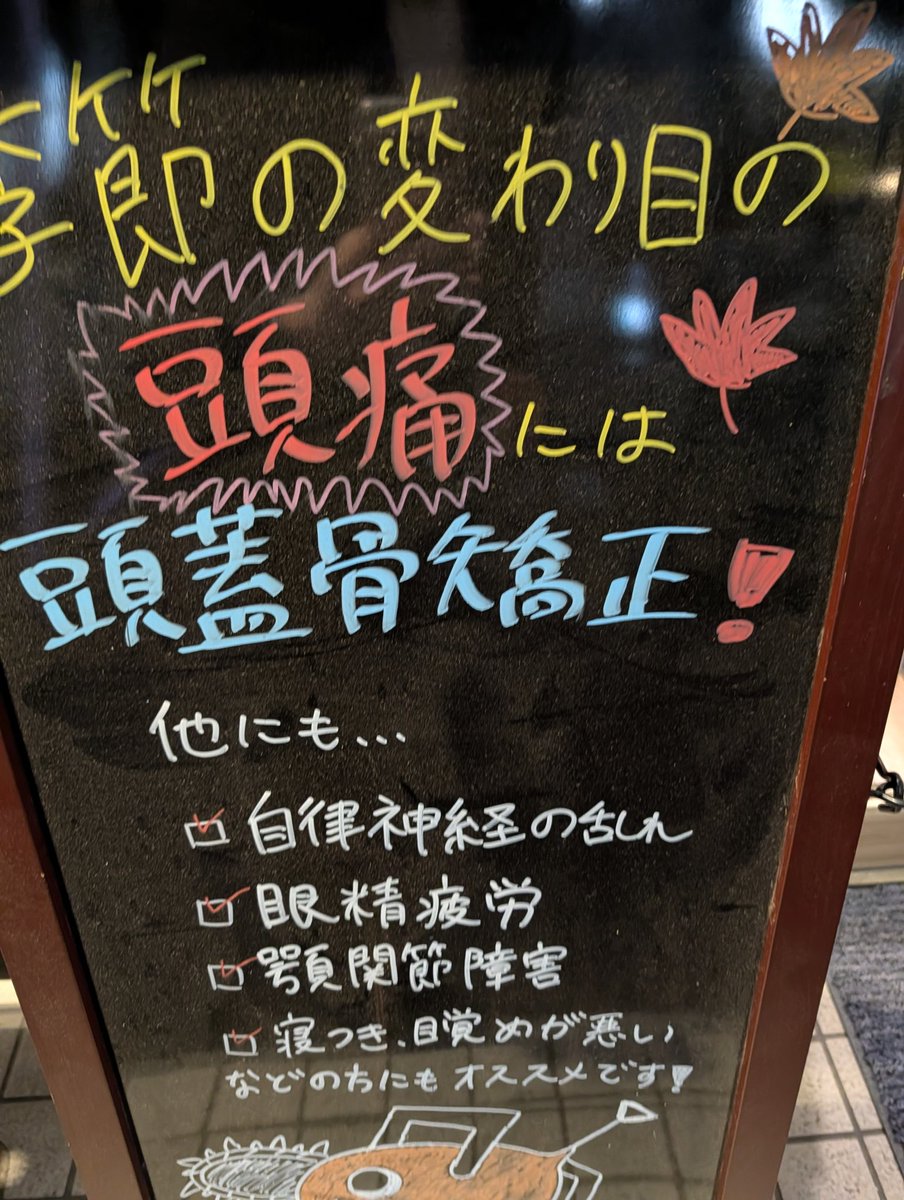 季節の変わり目の
頭痛には
頭蓋骨矯正!
他にも...
☑ 自律神経の乱れ
☑ 眼精疲労
☑ 顎関節障害
☑ 寝つき、目覚めが悪い
などの方にもオススメです!